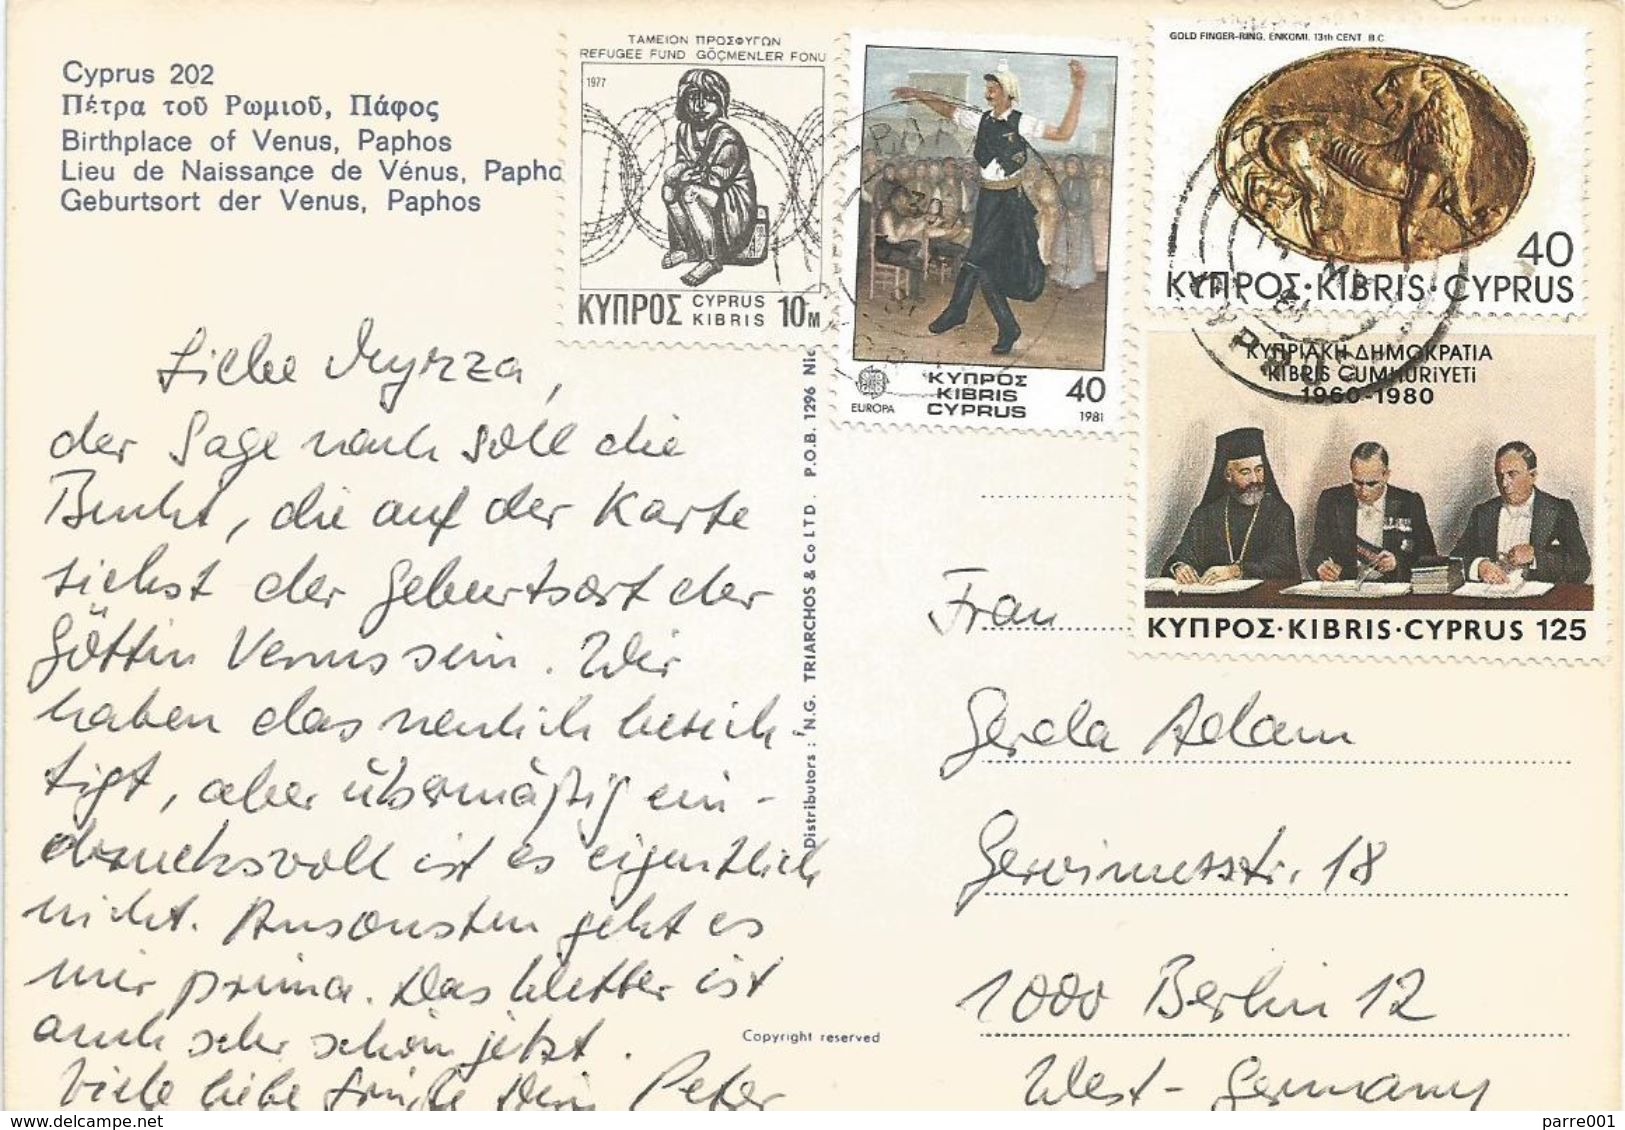 Cyprus 202
Πέτρα τοῦ Ρωμιοῦ, Πάφος
Birthplace of Venus, Paphos
Lieu de Naissance de Vénus, Papho
Geburtsort der Venus, Paphos
ΤΑΜΕΙΟΝ ΠΡΟΣΦΥΓΩΝ
REFUGEE FUND GÖÇMENLER FONU
1977
ΚΥΠΡΟΣ CYPRUS KIBRIS 10M
EUROPA
ΚΥΠΡΟΣ
KIBRIS
CYPRUS
40
1981
GOLD FINGER-RING, ENKOMI, 13th CENT B.C.
40
ΚΥΠΡΟΣ·KIBRIS·CYPRUS
ΚΥΠΡΙΑΚΗ ΔΗΜΟΚΡΑΤΙΑ
KIBRIS CUMHURİYETİ
1960-1980
ΚΥΠΡΟΣ·KIBRIS·CYPRUS 125
Liebe Myrzza,
der Sage nach soll die
Bucht, die auf der Karte
siehst der Geburtsort der
Göttin Venus sein. Wir
haben das neulich besich
tigt, aber übermäßig ein-
drucksvoll ist es eigentlich
nicht. Ansonsten geht es
mir prima. Das Wetter ist
auch sehr schön jetzt.
Viele liebe Grüße Dein Peter
Distributors : N.G. TRIARCHOS & Co LTD. P.O.B. 1296 Nic
Copyright reserved
Frau
Gerda Adam
Gervinusstr. 18
1000 Berlin 12
West-Germany
parre001